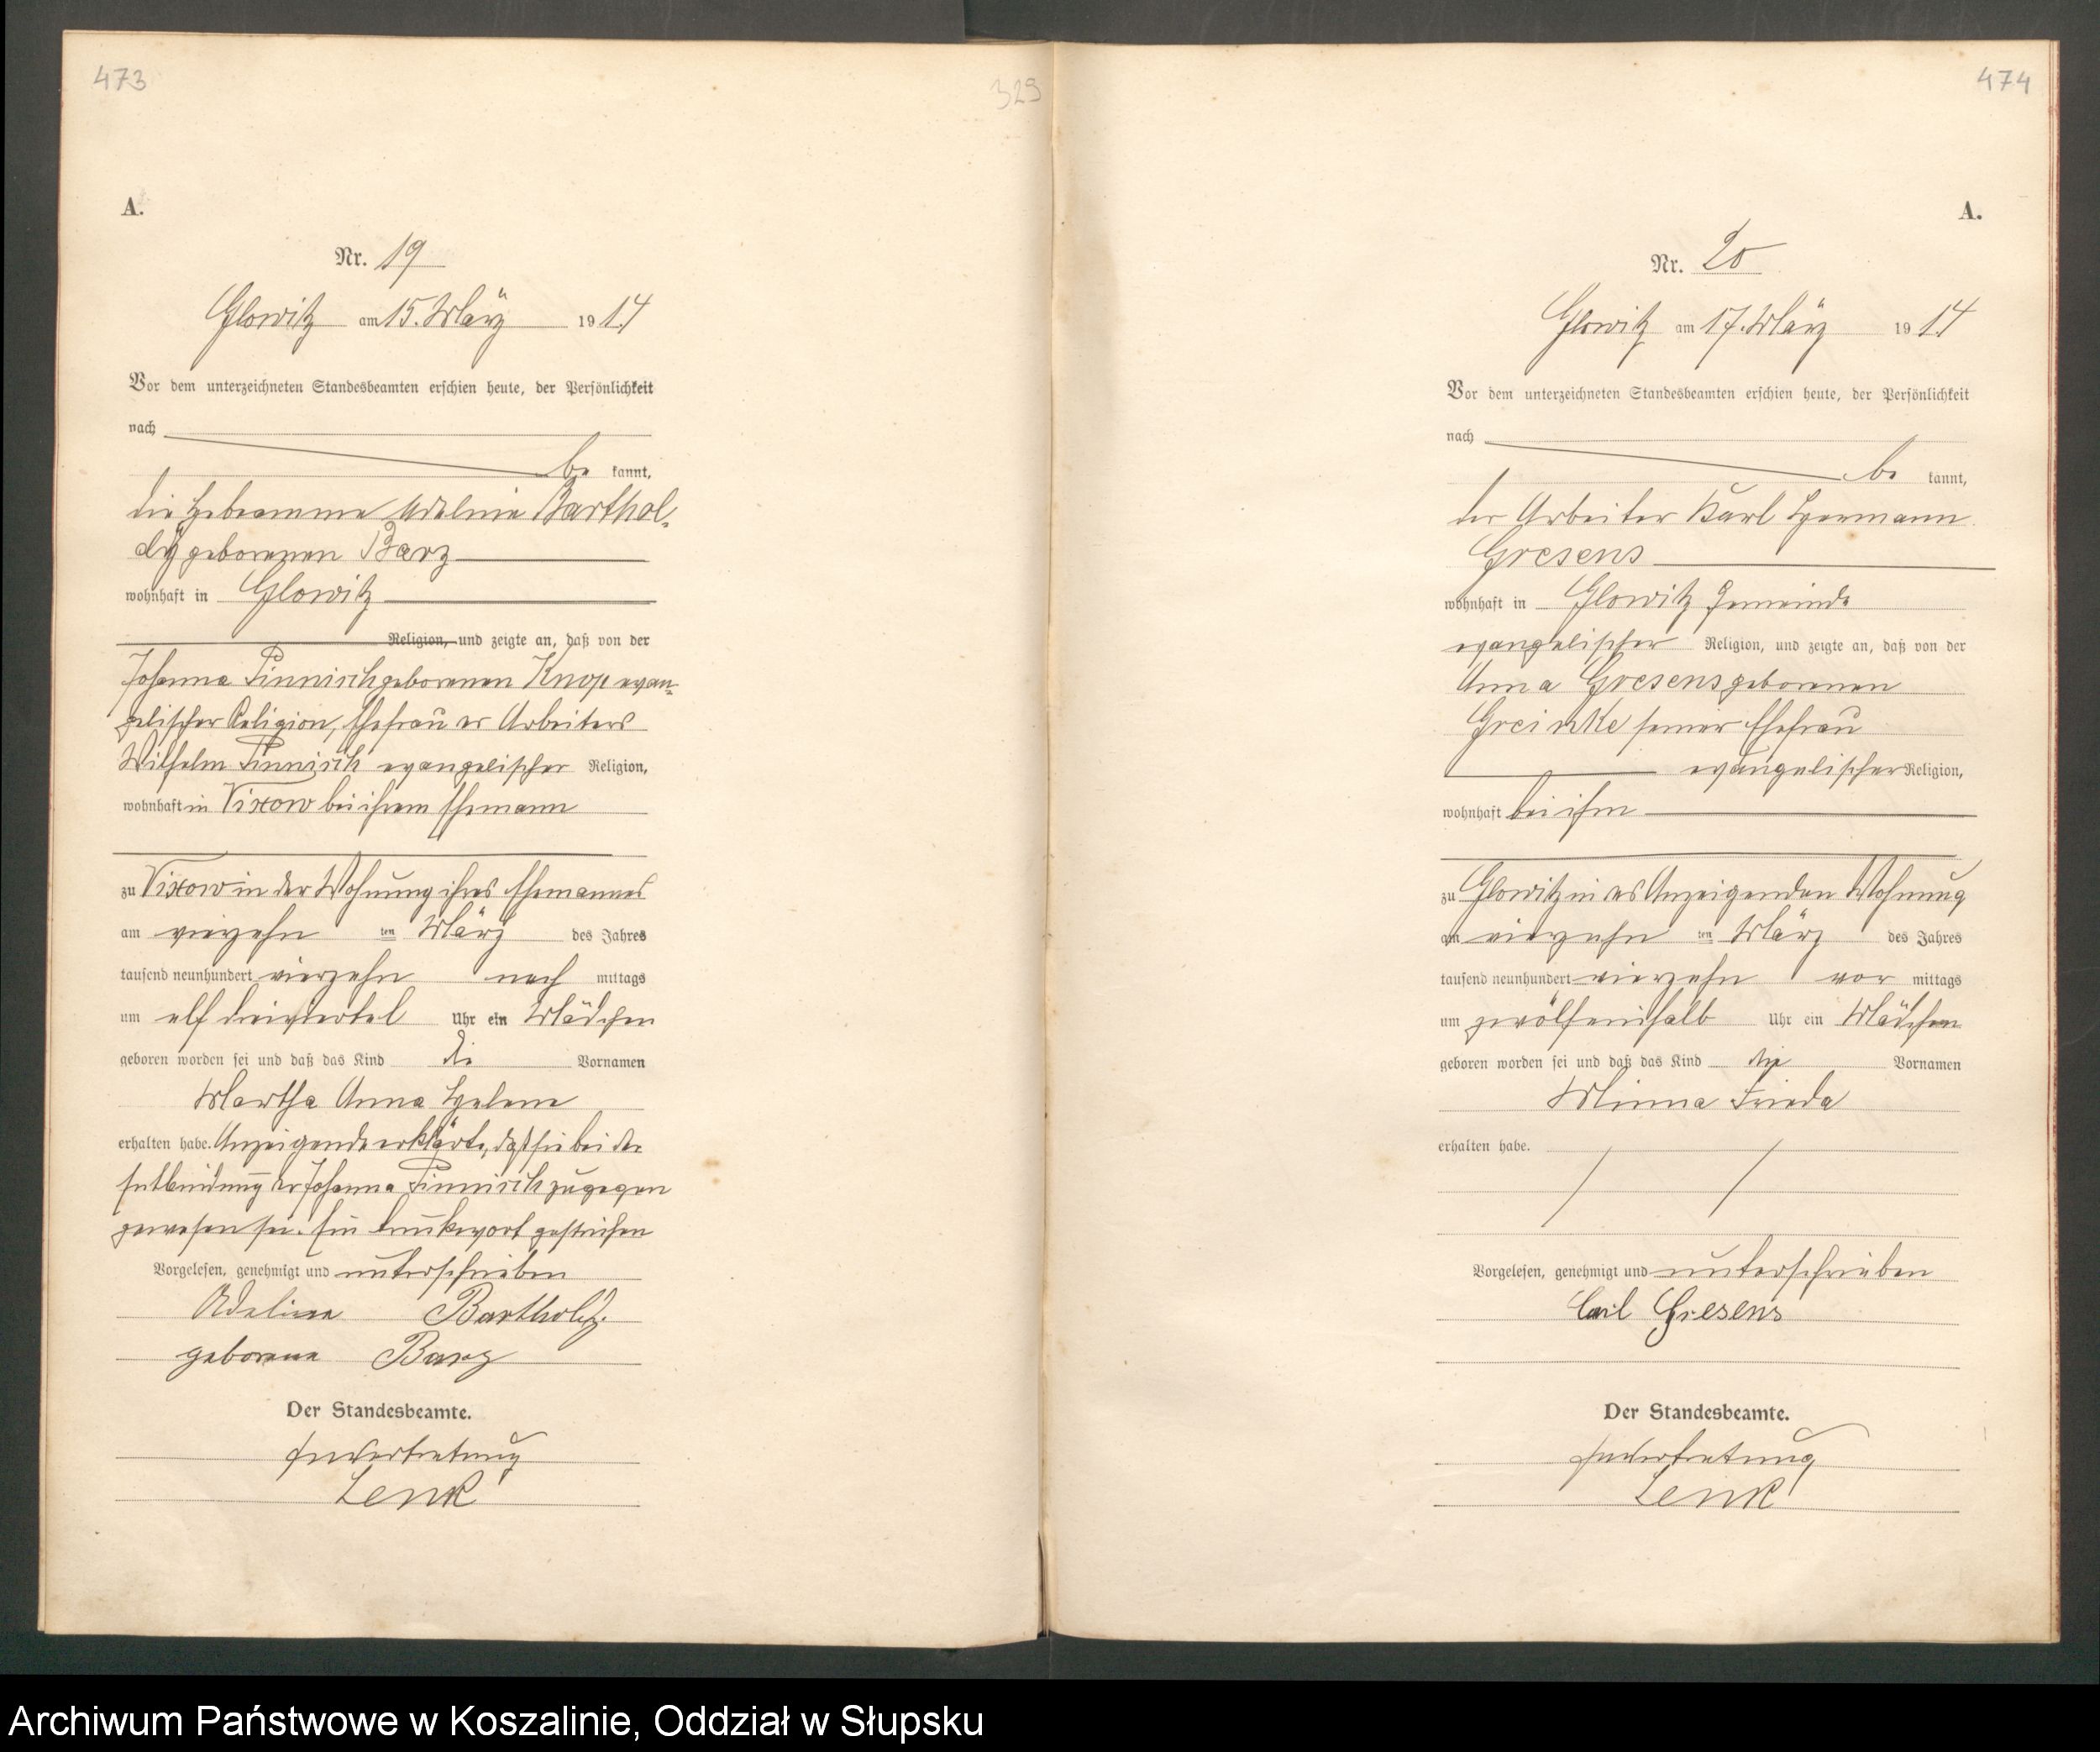 473
329
A.
Nr. 19
Glowitz am 15. März 1914
Vor dem unterzeichneten Standesbeamten erschien heute, der Persönlichkeit
nach
be kannt,
die Hebeamme Adeline Barthol-
dy geborenen Barz
wohnhaft in Glowitz
Religion, und zeigte an, daß von der
Johanna Pinnisch geborenen Knop evan-
gelischer Religion, Ehefrau es Arbeiters
Wilhelm Pinnisch evangelischer Religion,
wohnhaft in Vixow bei ihrem Ehemann
zu Vixow in der Wohnung ihres Ehemannes
am vierzehn ten März des Jahres
tausend neunhundert vierzehn nach mittags
um elf dreiviertel Uhr ein Mädchen
geboren worden sei und daß das Kind die Vornamen
Martha Anna Helene
erhalten habe. Anzeigende erklärte, daß sie bei der
Entbindung der Johanna Pinnisch zugegen
gewesen sei. Ein Druckwort gestrichen
Vorgelesen, genehmigt und unterschrieben
Adeline Bartholdy.
geborene Barz
Der Standesbeamte.
In Vertretung
Lenk
474
A.
Nr. 20
Glowitz am 17. März 1914
Vor dem unterzeichneten Standesbeamten erschien heute, der Persönlichkeit
nach
be kannt,
der Arbeiter Karl Hermann
Gresens
wohnhaft in Glowitz Gemeinde
evangelischer Religion, und zeigte an, daß von der
Anna Gresens geborenen
Greinke seiner Ehefrau
evangelischer Religion,
wohnhaft bei ihm
zu Glowitz in es Anzeigenden Wohnung
am vierzehn ten März des Jahres
tausend neunhundert vierzehn vor mittags
um zwölfeinhalb Uhr ein Mädchen
geboren worden sei und daß das Kind die Vornamen
Minna Frieda
erhalten habe.
Vorgelesen, genehmigt und unterschrieben
Carl Gresens
Der Standesbeamte.
In Vertretung
Lenk
Archiwum Państwowe w Koszalinie, Oddział w Słupsku